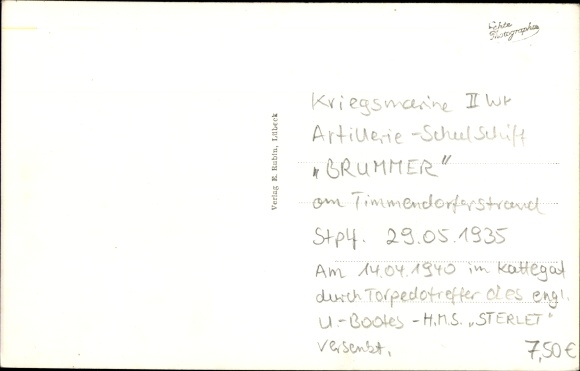 Echte
Photographie
Verlag E. Rubin, Lübeck
Kriegsmarine II WK
Artillerie-Schulschiff
„BRUMMER“
am Timmendorferstrand
Stpl. 29.05.1935
Am 14.04.1940 im Kattegat
durch Torpedotreffer des engl.
U-Bootes - H.M.S. „STERLET“
versenkt.
7,50 €